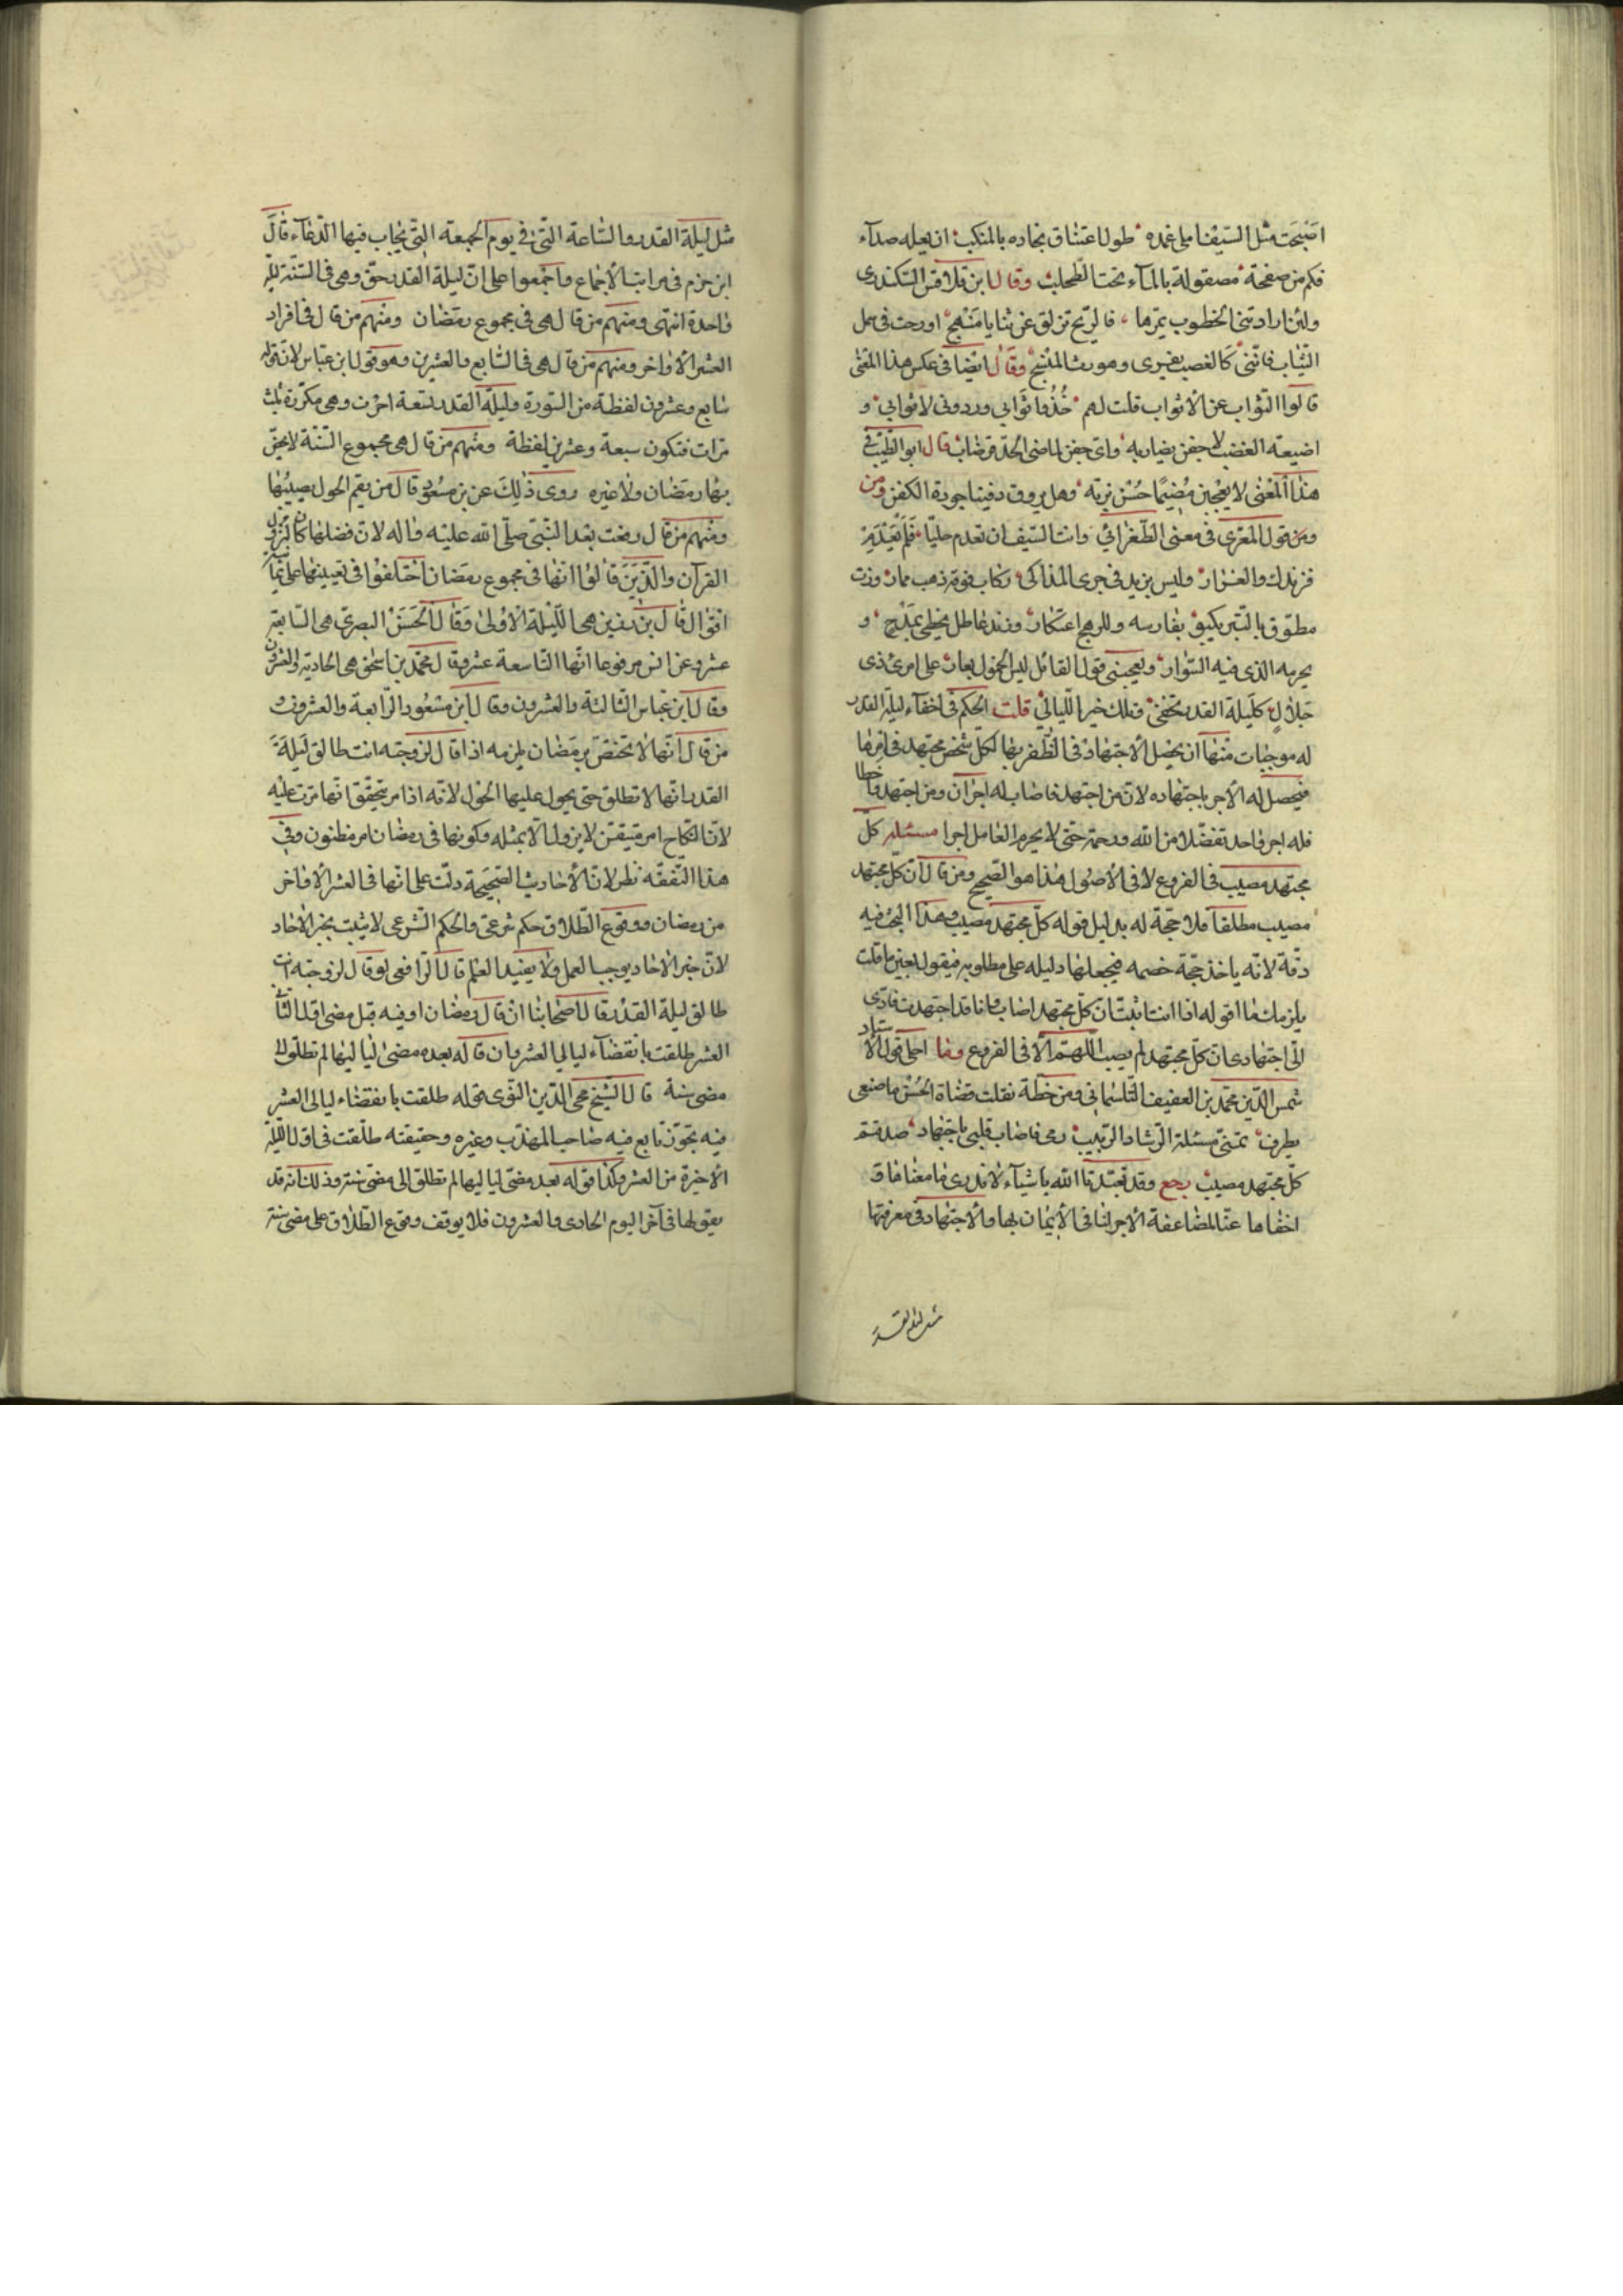 اصبحت مثل السيف ابلى غمده طول اعتناق نجاده بالمنكب ان يعله صداء
فكم من صفحة مصقولة بالماء تحت الطحلب وقال ابن قلاقس السكندرى
ولئن ارادتنى الخطوب بمرها فالريح تزلق عن ثنايا منهج اورحت فى سمل
الثياب فاننى كالغصب يفرى وهو رث المنسج وقال ايضا فى عكس هذا المعنى
قالوا الثواب عن الاثواب قلت لهم خذوا ثوابى وردونى لاثوابى و
اضيعة العضب لا جفن يضاربه واى جفن لماضى الحد قرضاب قال ابو الطيب فى
هذا المعنى لا يعجبن مضيما حسن بزته وهل يروق دفينا جودة الكفن ومن
ومن قول المعرى فى معنى الطغرائى وانت السيف ان تعدم حليا فلم يعدم
فرندك والغرار وليس يزيد فى جرى المذاكى ركاب فوقه ذهب ممار ورب
مطوق بالتبر يكبو بفارسه وللرهج اعتكار وزند عاطل يحظى بمدح و
يحرمه الذى فيه السوار ويعجبنى قول القائل ليس الخمول بعار على امرئ ذى
جلال كليلة القدر تخفى وتلك خير الليالى قلت الحكم فى اخفاء ليلة القدر
له موجبات منها ان يحصل الاجتهاد فى الظفر بها لكل شخص مجتهد فى امرها
فيحصل له الاجر باجتهاده لان من اجتهد فاصاب له اجران ومن اجتهد واخطا
فله اجر واحد تفضلا من الله ورحمة حتى لا يحرم العامل اجرا مسئله كل
مجتهد مصيب فى الفروع لا فى الاصول هذا هو الصحيح ومن قال ان كل مجتهد
مصيب مطلقا فلا حجة له بدليل قوله كل مجتهد مصيب وهذا البحث فيه
دقة لانه ياخذ حجة خصمه فيجعلها دليله على مطلوبه فيقول بعين ما قلت
يلزمك ما اقوله اذا انت اثبت ان كل مجتهد اصاب فانا قد اجتهدت فادى
الى اجتهادى ان كل مجتهد لم يصب اللهم الا فى الفروع وما احلى قول الاستاد
شمس الدين محمد بن العفيف التلسمانى ومن خطه نقلت قضاة الحسن ما صنعى
بطرف تمنى مسئلة الرشاد الربيب رمى فاصاب قلبى باجتهاد صدقتم
كل مجتهد مصيب رجع وقد تعبدنا الله باشياء لا ندرى ما معناها و
اخفاها عنا لمضاعفة الاجر لنا فى الايمان بها والاجتهاد فى معرفتها
مثل ليلة القدر
مثل ليلة القدر والساعة التى فى يوم الجمعة التى يجاب فيها الدعاء قال
ابن حزم فى مراتب الاجماع واجمعوا على ان ليلة القدر حق وهى فى السنة ليلة
واحدة انتهى ومنهم من قال هى فى مجموع رمضان ومنهم من قال فى افراد
العشر الاواخر ومنهم من قال هى فى السابع والعشرين وهو قول ابن عباس لان قوله
سابع وعشرون لفظة من السورة وليلة القدر تسعة احرف وهى مكررة ثلث
مرات فتكون سبعة وعشرين لفظة ومنهم من قال هى مجموع السنة لا يختص
بها رمضان ولا غيره روى ذلك عن بن مسعود قال من يقم الحول يصيبها
ومنهم من قال رفعت بعد النبى صلى الله عليه واله لان فضلها كان لنزول
القرآن والذين قالوا انها فى مجموع رمضان اختلفوا فى تعيينها على ثمانية
اقوال قال بن رزين هى الليلة الاولى وقال الحسن البصرى هى السابعة
عشر وعن انس مرفوعا انها التاسعة عشر وقال محمد بن اسحق هى الحادية والعشرون
وقال ابن عباس الثالثة والعشرون وقال ابن مسعود الرابعة والعشرون
من قال انها لا تختص برمضان يلزمه اذا قال لزوجته انت طالق ليلة
القدر انها لا تطلق حتى يحول عليها الحول لانه اذا مر يتحقق انها مرت عليه
لان النكاح امر متيقن لا يزول الا بمثله وكونها فى رمضان امر مظنون وفى
هذا التفقه نظر لان الاحاديث الصحيحة دلت على انها فى العشر الاواخر
من رمضان ووقوع الطلاق حكم شرعى والحكم الشرعى لا يثبت بخبر الاحاد
لان خبر الاحاد يوجب العمل ولا يفيد العلم قال الرافعى لو قال لزوجته انت
طالق ليلة القدر قال اصحابنا ان قال رمضان او فيه قبل مضى اول ليالى
العشر طلقت بانقضاء ليالى العشر وان قاله بعده مضى لياليها لم تطلق الا
مضى سنة قال الشيخ محى الدين النووى قوله طلقت بانقضاء ليالى العشر
فيه تجوز تابع فيه صاحب المهذب وغيره وحقيقته طلقت فى اول الليلة
الاخيرة من العشر وكذا قوله بعد مضى لياليها لم تطلق الى مضى سنة وذلك انه قد
يقولها فى آخر اليوم الحادى والعشرون فلا يوقف وقوع الطلاق على مضى سنة